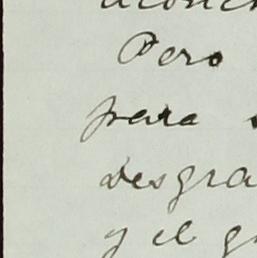 Pero
para
desgra
y el g